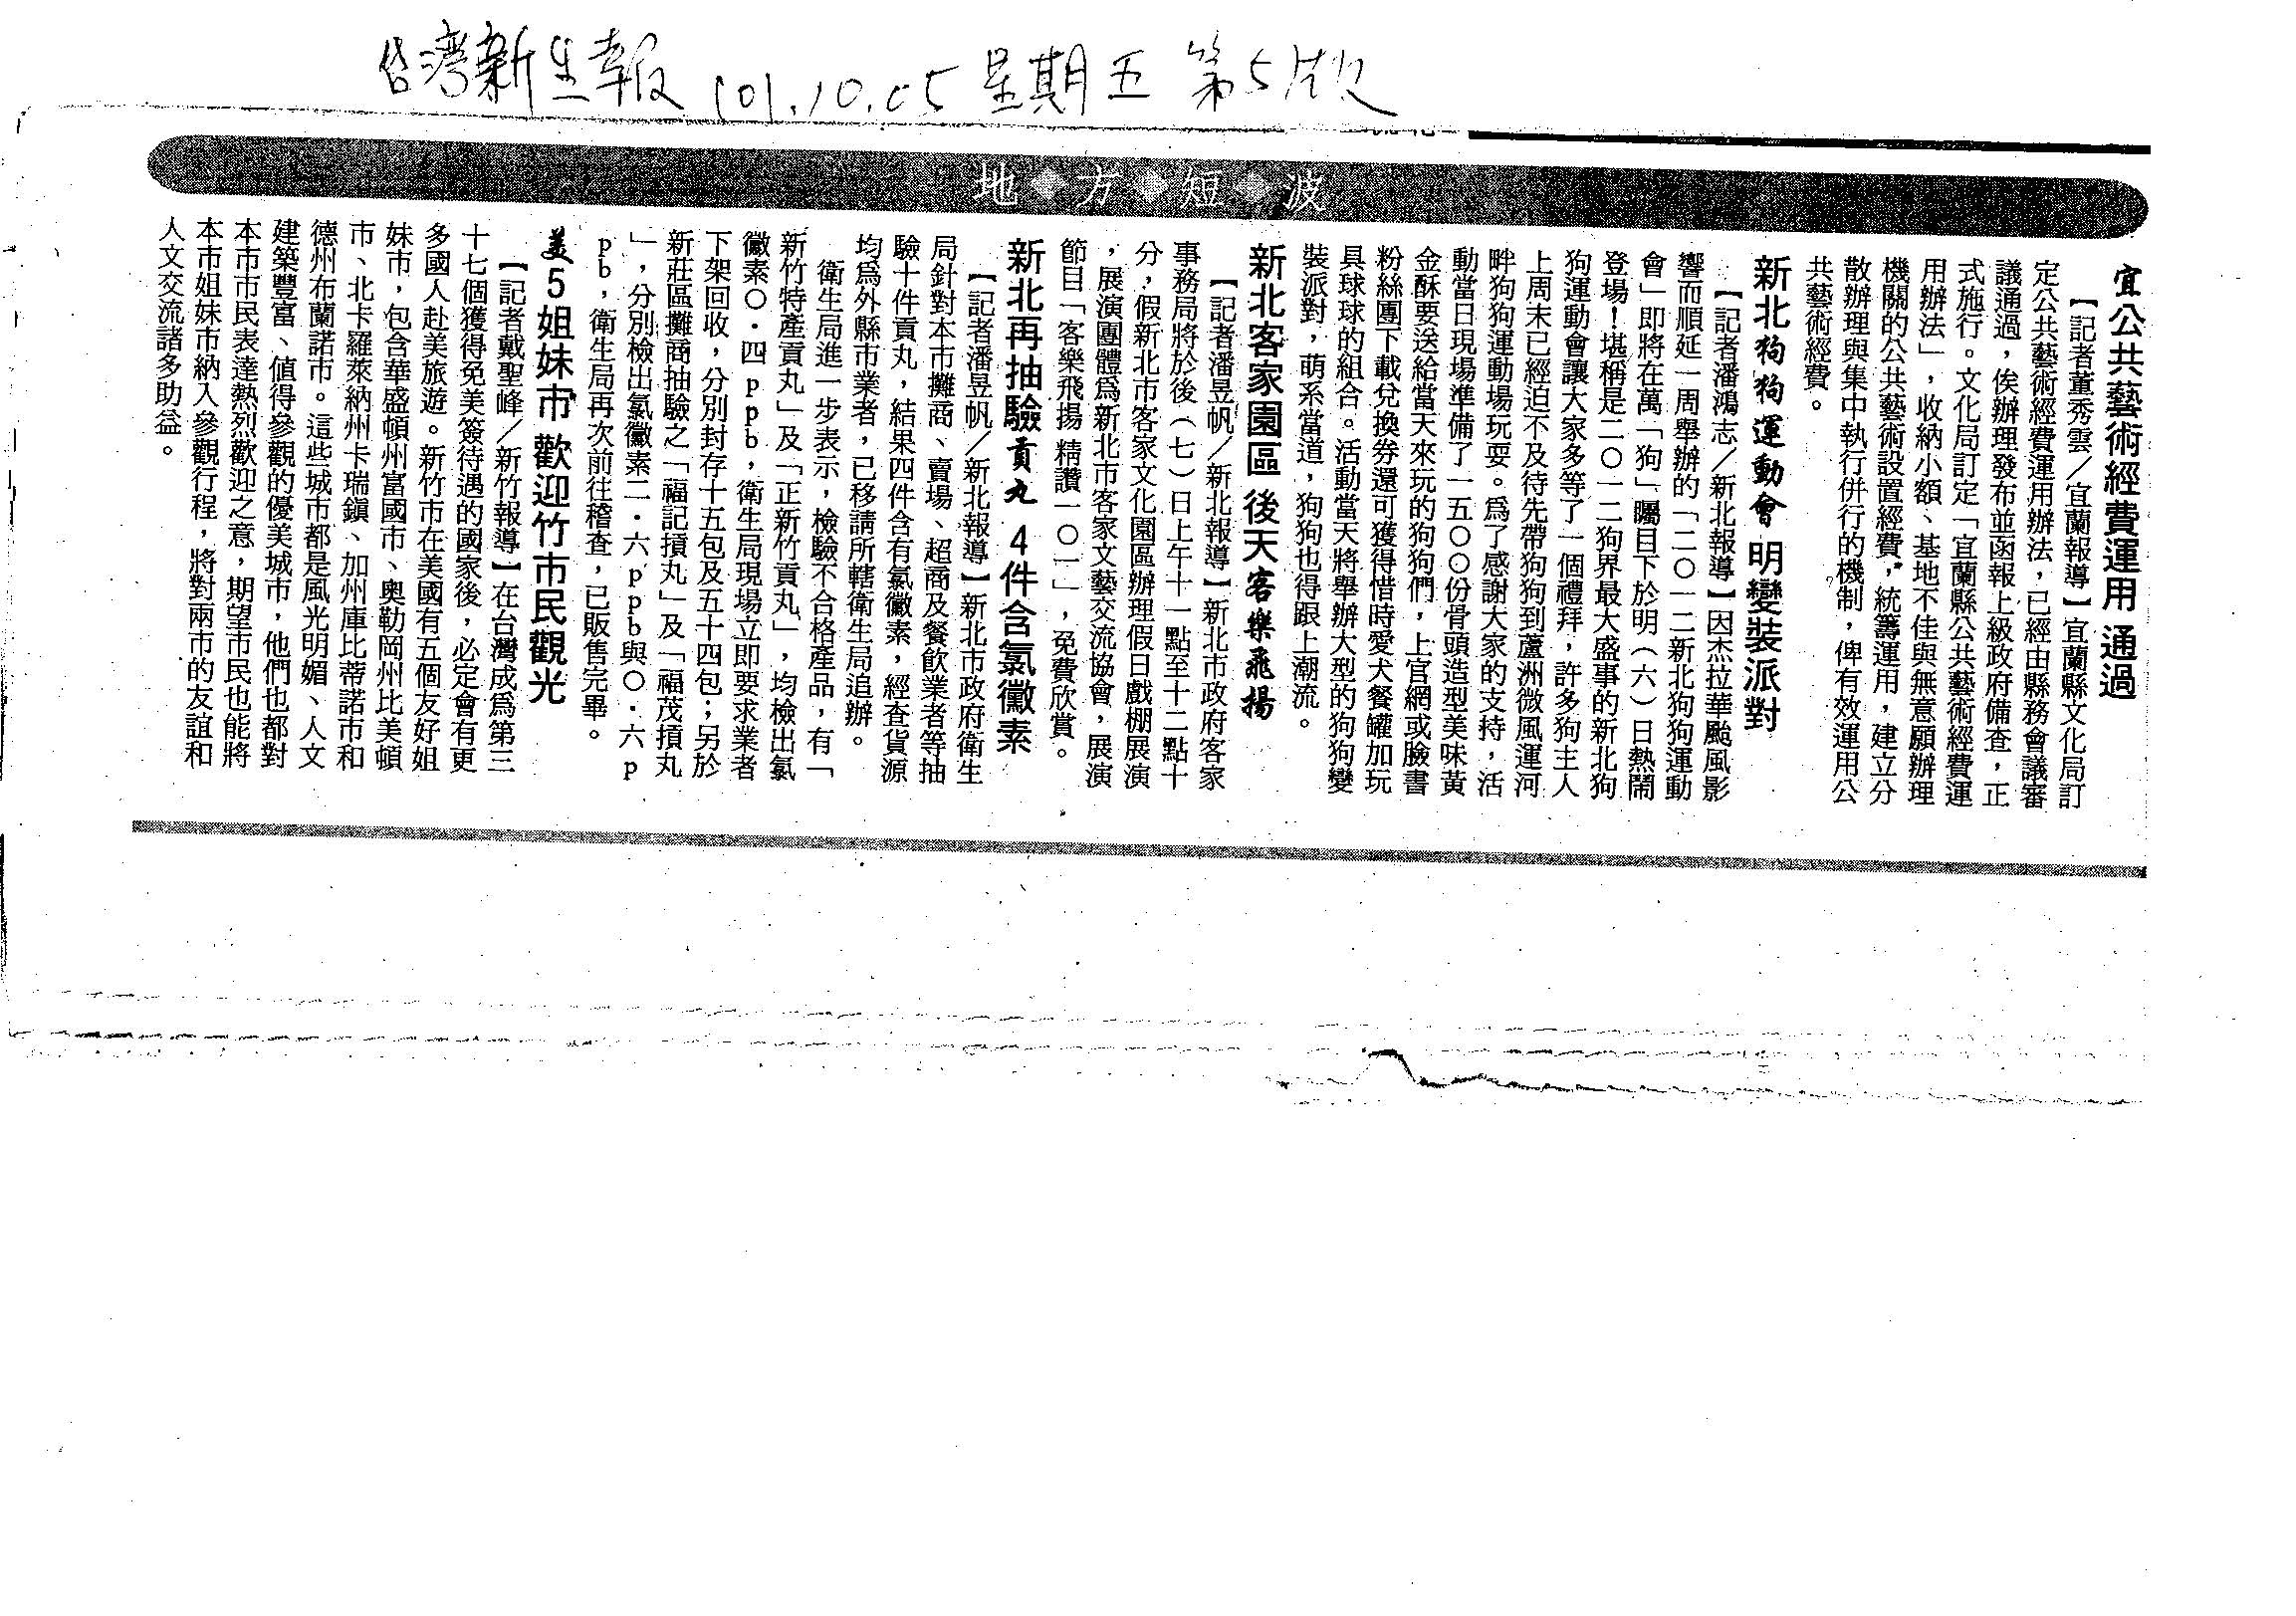 台灣新生報 101.10.05 星期五 第5版
地方短波
宜公共藝術經費運用 通過
【記者董秀雲／宜蘭報導】宜蘭縣文化局訂
定公共藝術經費運用辦法，已經由縣務會議審
議通過，俟辦理發布並函報上級政府備查，正
式施行。文化局訂定「宜蘭縣公共藝術經費運
用辦法」，收納小額、基地不佳與無意願辦理
機關的公共藝術設置經費，統籌運用，建立分
散辦理與集中執行併行的機制，俾有效運用公
共藝術經費。
新北狗狗運動會 明變裝派對
【記者潘鴻志／新北報導】因杰拉華颱風影
響而順延一周舉辦的「二○一二新北狗狗運動
會」即將在萬「狗」矚目下於明（六）日熱鬧
登場！堪稱是二○一二狗界最大盛事的新北狗
狗運動會讓大家多等了一個禮拜，許多狗主人
上周末已經迫不及待先帶狗狗到蘆洲微風運河
畔狗狗運動場玩耍。為了感謝大家的支持，活
動當日現場準備了一五○○份骨頭造型美味黃
金酥要送給當天來玩的狗狗們，上官網或臉書
粉絲團下載兌換券還可獲得惜時愛犬餐罐加玩
具球球的組合。活動當天將舉辦大型的狗狗變
裝派對，萌系當道，狗狗也得跟上潮流。
新北客家園區 後天客樂飛揚
【記者潘昱帆／新北報導】新北市政府客家
事務局將於後（七）日上午十一點至十二點十
分，假新北市客家文化園區辦理假日戲棚展演
，展演團體為新北市客家文藝交流協會，展演
節目「客樂飛揚 精讚一○一」，免費欣賞。
新北再抽驗貢丸 4件含氯黴素
【記者潘昱帆／新北報導】新北市政府衛生
局針對本市攤商、賣場、超商及餐飲業者等抽
驗十件貢丸，結果四件含有氯黴素，經查貨源
均為外縣市業者，已移請所轄衛生局追辦。
衛生局進一步表示，檢驗不合格產品，有「
新竹特產貢丸」及「正新竹貢丸」，均檢出氯
黴素○．四ppb，衛生局現場立即要求業者
下架回收，分別封存十五包及五十四包；另於
新莊區攤商抽驗之「福記摃丸」及「福茂摃丸
」，分別檢出氯黴素二．六ppb與○．六p
pb，衛生局再次前往稽查，已販售完畢。
美5姐妹市 歡迎竹市民觀光
【記者戴聖峰／新竹報導】在台灣成為第三
十七個獲得免美簽待遇的國家後，必定會有更
多國人赴美旅遊。新竹市在美國有五個友好姐
妹市，包含華盛頓州富國市、奧勒岡州比美頓
市、北卡羅萊納州卡瑞鎮、加州庫比蒂諾市和
德州布蘭諾市。這些城市都是風光明媚、人文
建築豐富、值得參觀的優美城市，他們也都對
本市市民表達熱烈歡迎之意，期望市民也能將
本市姐妹市納入參觀行程，將對兩市的友誼和
人文交流諸多助益。